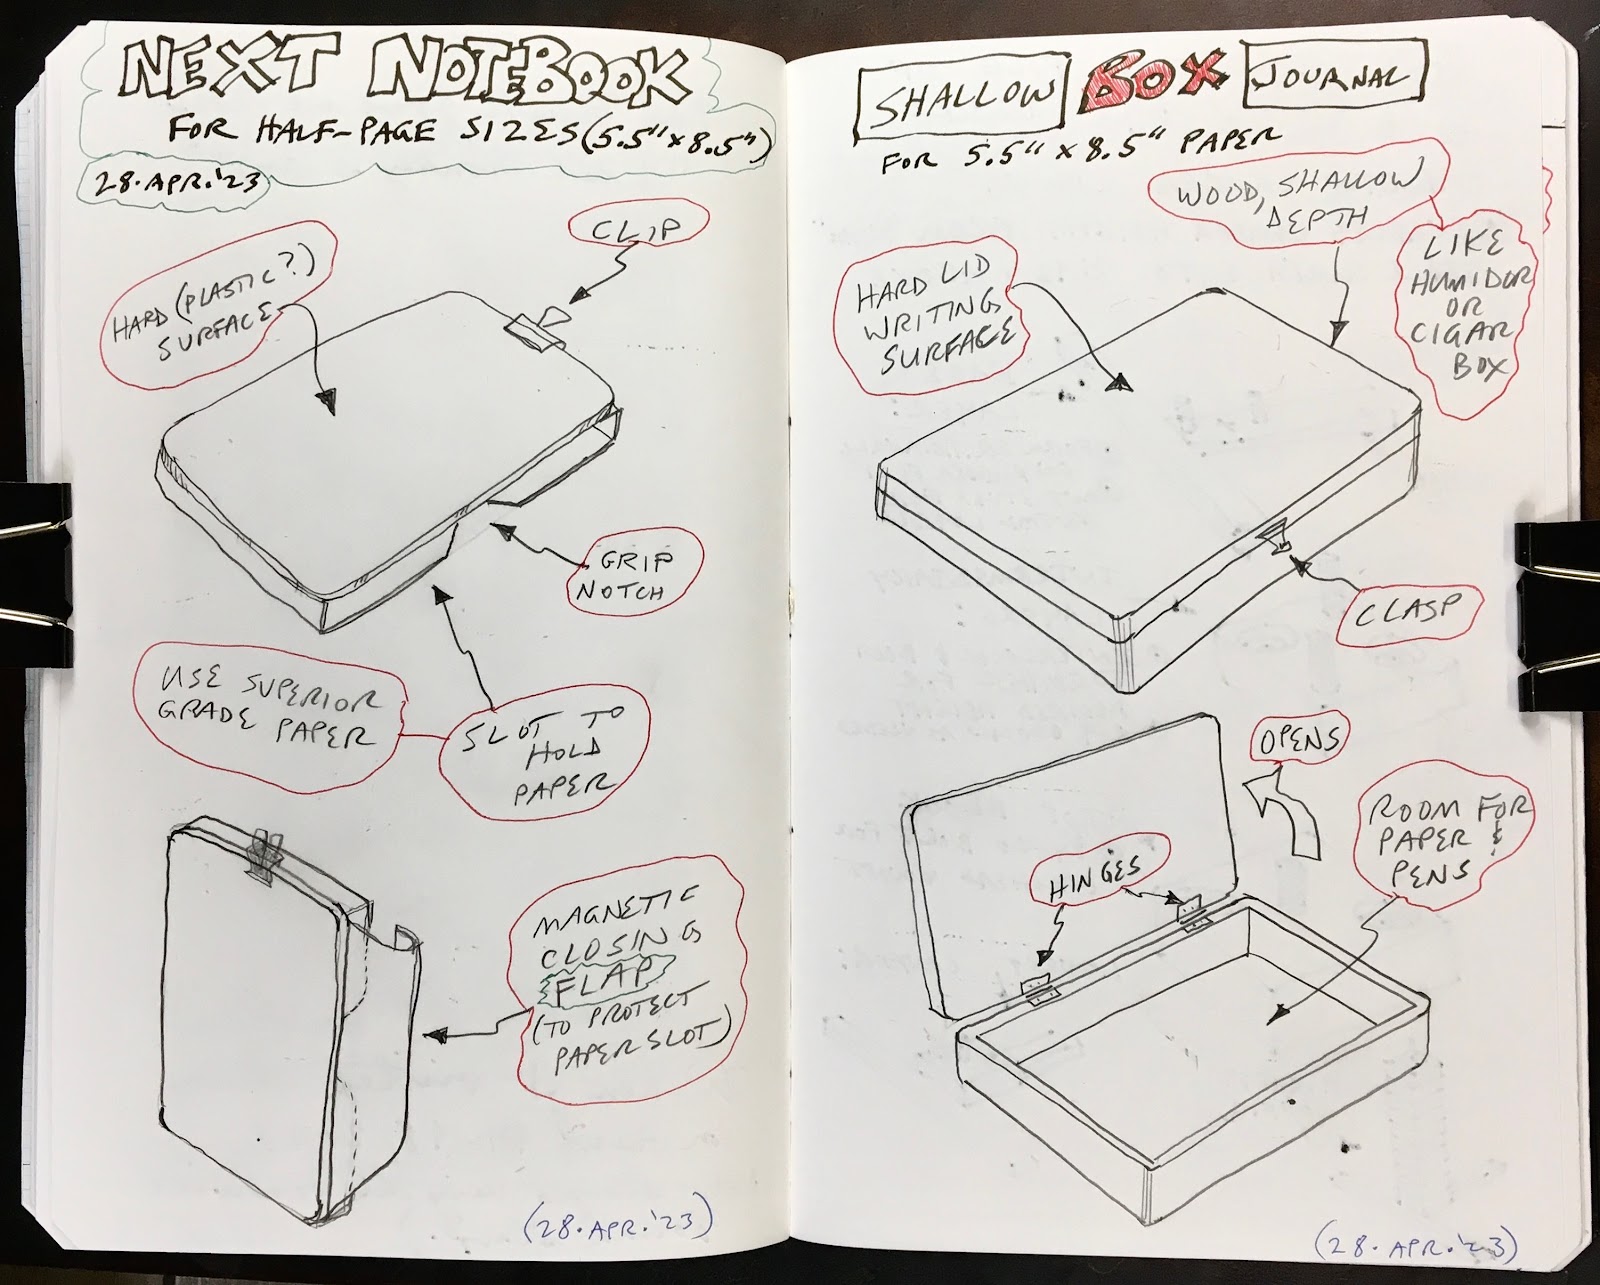 NEXT NOTEBOOK
FOR HALF-PAGE SIZES (5.5" x 8.5")
28.APR.'23
CLIP
HARD (PLASTIC?)
SURFACE
GRIP
NOTCH
USE SUPERIOR
GRADE PAPER
SLOT TO
HOLD
PAPER
MAGNETIC
CLOSING
FLAP
(TO PROTECT
PAPER SLOT)
(28.APR.'23)
SHALLOW BOX JOURNAL
FOR 5.5" x 8.5" PAPER
WOOD, SHALLOW
DEPTH
LIKE
HUMIDOR
OR
CIGAR
BOX
HARD LID
WRITING
SURFACE
CLASP
OPENS
ROOM FOR
PAPER &
PENS
HINGES
(28.APR.'23)